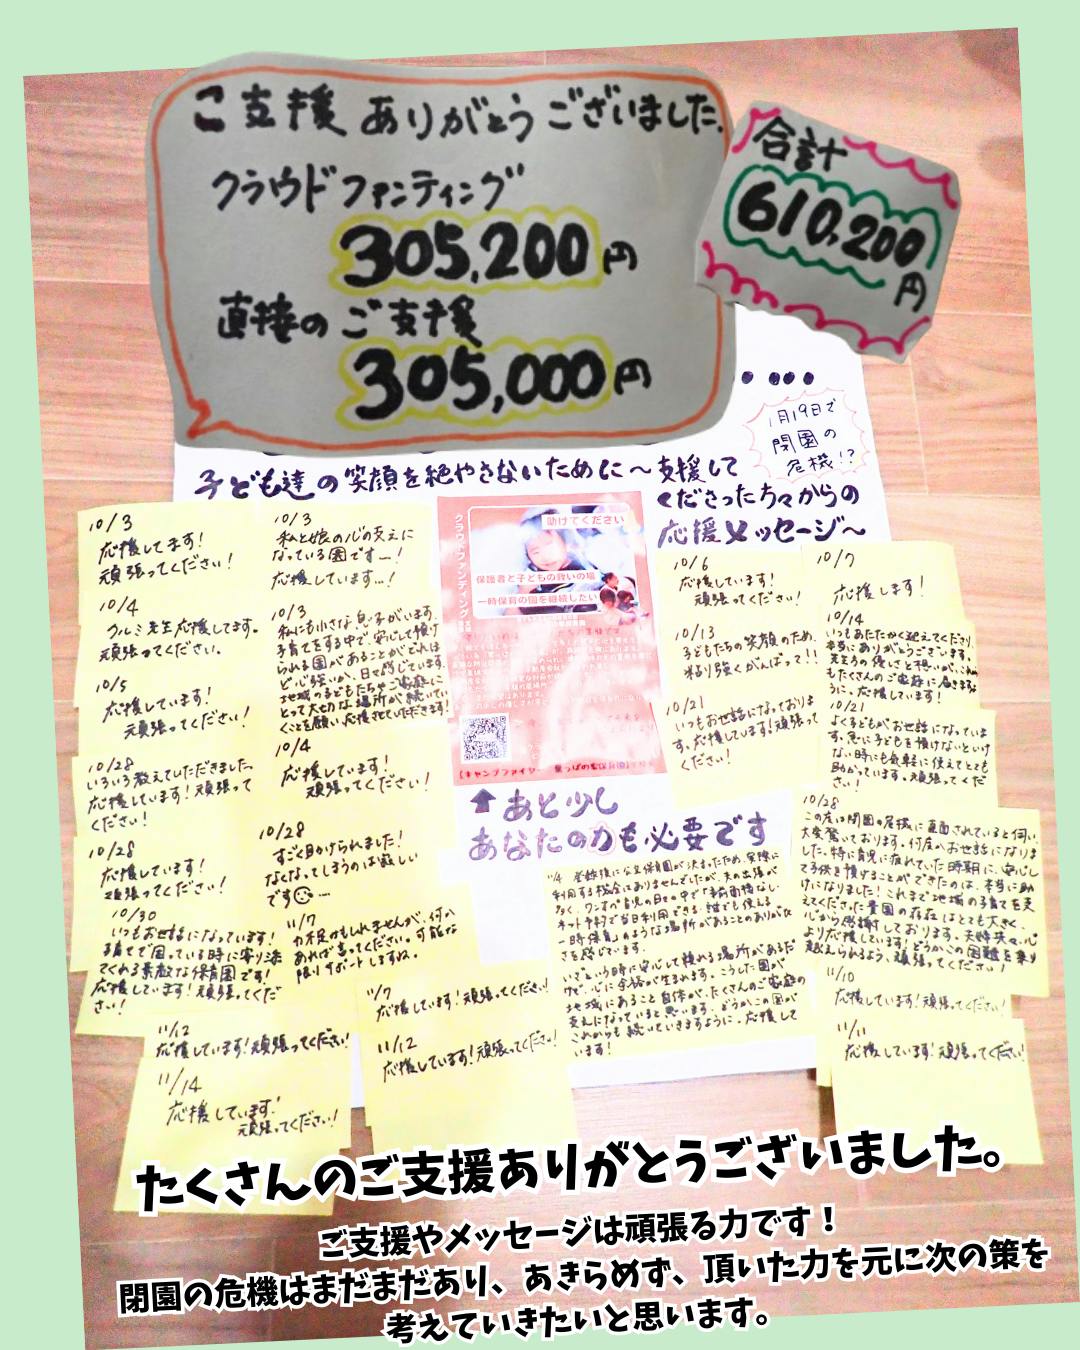 ご支援ありがとうございました。
クラウドファンティング
305,200円
直接のご支援
305,000円
合計
610,200
円
1月19日で
閉園の
危機!?
子ども達の笑顔を絶やさないために〜支援して
くださった方々からの
応援メッセージ〜
10/3
応援してます!
頑張ってください!
10/4
クルミ先生応援してます。
頑張ってください。
10/5
応援しています!
頑張ってください!
10/28
いろいろ教えていただきました。
応援しています!頑張って
ください!
10/28
応援しています!
頑張ってください!
10/30
いつもお世話になっています!
子育てで困っている時に寄り添
てくれる素敵な保育園です!
応援しています!頑張ってくだ
さい!
11/12
応援しています!頑張ってください!
11/14
応援しています!
頑張ってください!
10/3
私と娘の心の支えに
なっている園です…!
応援しています…!
10/3
私にも小さな息子がいます。
子育てをする中で安心して預け
られる園があることがどれほ
ど心強いか、日々感じています。
地域の子どもたちやご家庭に
とって大切な場所が続いてい
くことを願い応援させていただきます!
10/4
応援しています!
頑張ってください!
10/28
すごく助けられました!
なくなってしまうのは寂しい
です
11/7
力不足かもしれませんが、何か
あれば言ってください。可能な
限りサポートしますね。
11/7
応援しています!頑張ってください!
11/12
応援しています!頑張ってください!
クラウドファンディング
助けてください
保護者と子どもの救いの場
一時保育の園を継続したい
【キャンプファイヤー 葉っぱの家保育園】
↑あと少し
あなたの力も必要です
11/4 登録後に公立保育園が決まったため、実際に
利用する機会はありませんでしたが、夫の出張が
多く、ワンオペ育児の日々の中で「事前面接なし・
ネット予約で当日利用できる・誰でも使える
一時保育」のような場所があることのありがたさ
を感じています。
いざという時に安心して頼れる場所があるだ
けで、心に余裕が生まれます。こうした園が
地域にあること自体が、たくさんのご家庭の
支えになっていると思います。どうかこの園が
これからも続いていきますように。応援して
います!
10/6
応援しています!
頑張ってください!
10/13
子どもたちの笑顔のため、
粘り強くがんばって!!
10/21
いつもお世話になっておりま
す。応援しています!頑張って
ください!
10/7
応援します!
10/14
いつもあたたかく迎えてくださり、
本当にありがとうございます。
先生方の優しさと想いが、これから
もたくさんのご家庭に届きますよ
うに。応援しています!
10/21
よく子どもがお世話になっていま
す。急に子どもを預けないといけ
ない時にも気軽に使えてとても
助かっています。頑張ってくださ
い!
10/28
この度は閉園の危機に直面されていると伺い、
大変驚いております。何度かお世話になりま
した。特に育児に疲れていた時期に、安心し
て子供を預けることができたのは、本当に助
けになりました!これまで地域の子育てを支
えてくださった貴園の存在はとても大きく、
心から感謝しております。夫婦共々、心
より応援しています!どうかこの困難を乗り
越えられるよう、頑張ってください!
11/10
応援しています!頑張ってください!
11/11
応援しています!頑張ってください!
たくさんのご支援ありがとうございました。
ご支援やメッセージは頑張る力です!
閉園の危機はまだまだあり、あきらめず、頂いた力を元に次の策を
考えていきたいと思います。